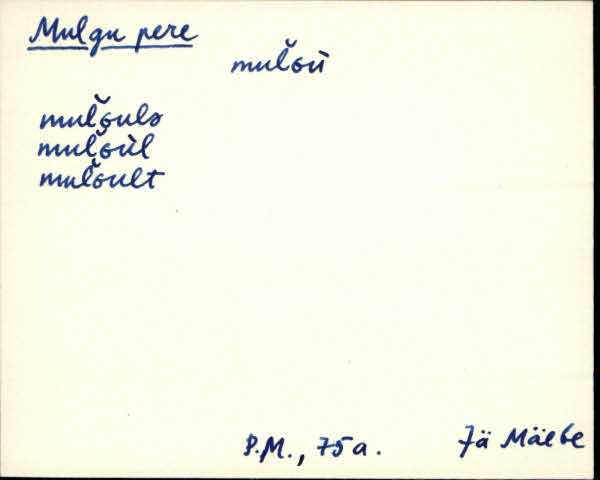 Mulgu pere
mul̆ɢù
mul̆ɢulə
mul̆ɢùl
mul̆ɢult
P.M., 75 a.
Jä Mäebe